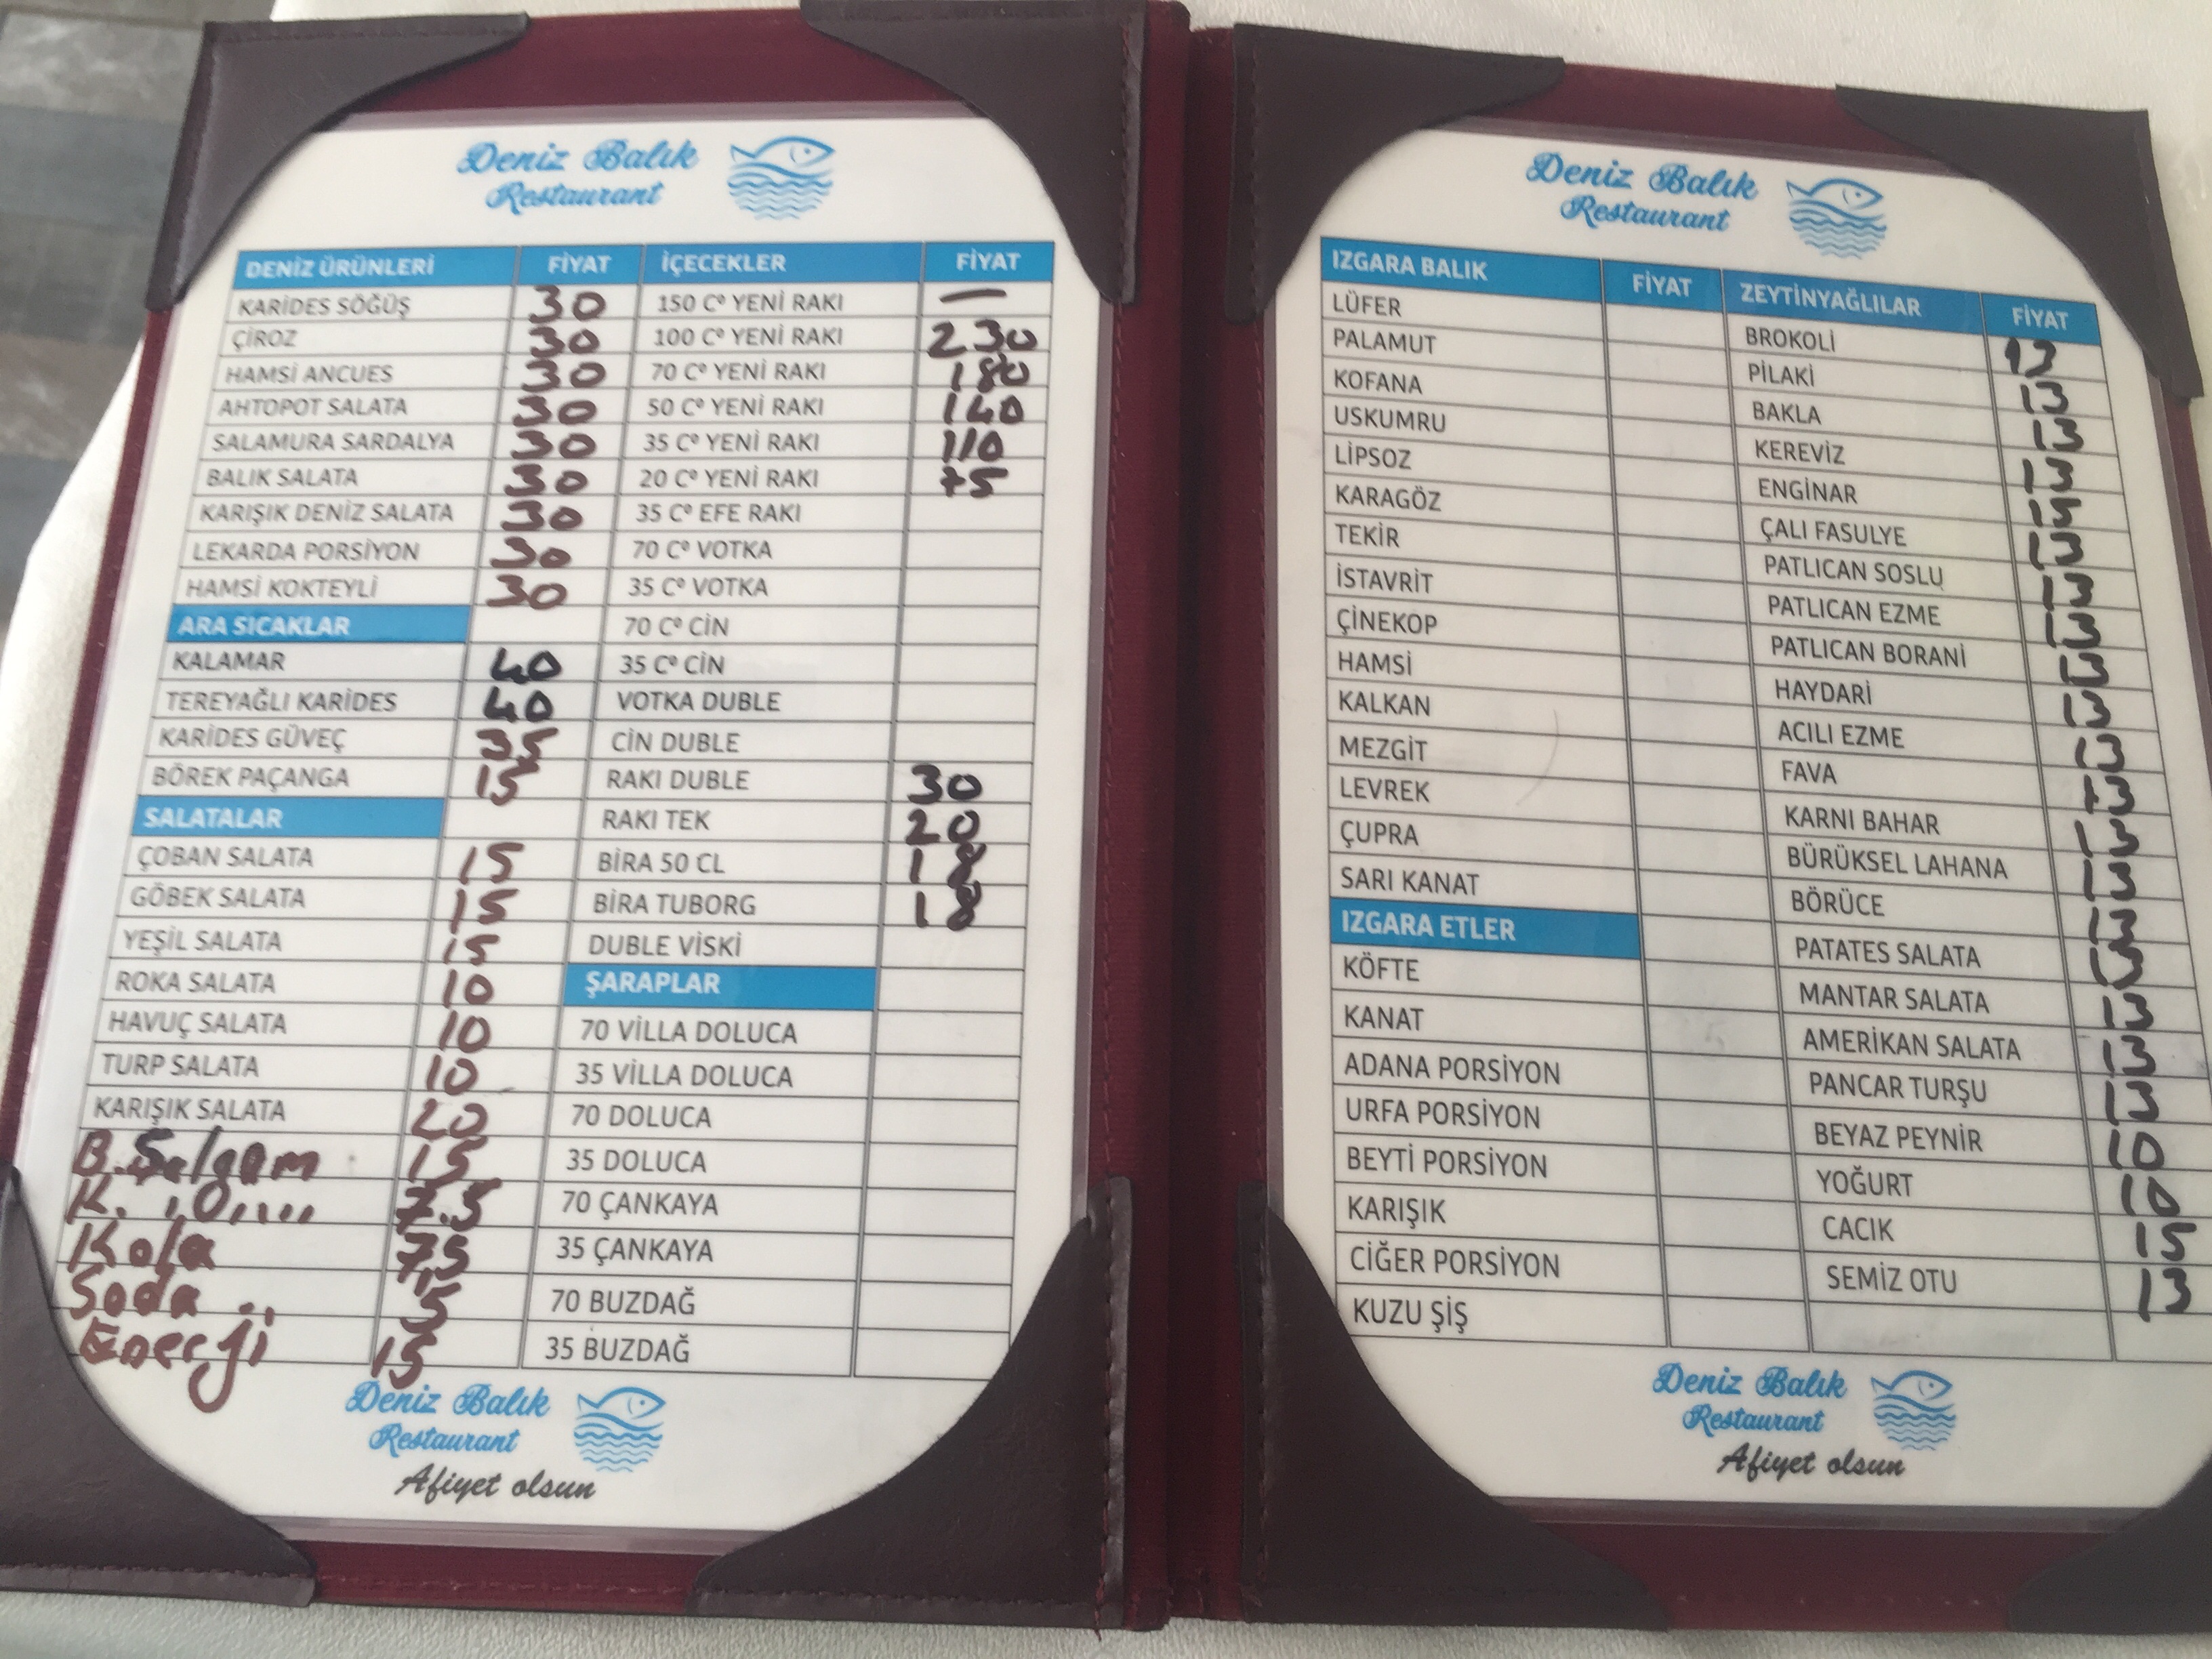 Deniz Balık
Restaurant
DENİZ ÜRÜNLERİ FİYAT İÇECEKLER FİYAT
KARİDES SÖĞÜŞ 30 150 Cº YENİ RAKI —
ÇİROZ 30 100 Cº YENİ RAKI 230
HAMSİ ANCUES 30 70 Cº YENİ RAKI 180
AHTOPOT SALATA 30 50 Cº YENİ RAKI 140
SALAMURA SARDALYA 30 35 Cº YENİ RAKI 110
BALIK SALATA 30 20 Cº YENİ RAKI 75
KARIŞIK DENİZ SALATA 30 35 Cº EFE RAKI
LEKARDA PORSİYON 30 70 Cº VOTKA
HAMSİ KOKTEYLİ 30 35 Cº VOTKA
ARA SICAKLAR 70 Cº CİN
KALAMAR 40 35 Cº CİN
TEREYAĞLI KARİDES 40 VOTKA DUBLE
KARİDES GÜVEÇ 35 CİN DUBLE
BÖREK PAÇANGA 15 RAKI DUBLE 30
SALATALAR RAKI TEK 20
ÇOBAN SALATA 15 BİRA 50 CL 18
GÖBEK SALATA 15 BİRA TUBORG 18
YEŞİL SALATA 15 DUBLE VİSKİ
ROKA SALATA 10 ŞARAPLAR
HAVUÇ SALATA 10 70 VİLLA DOLUCA
TURP SALATA 10 35 VİLLA DOLUCA
KARIŞIK SALATA 20 70 DOLUCA
B. Şalgam 15 35 DOLUCA
K. 7.5 70 ÇANKAYA
Kola 7,5 35 ÇANKAYA
Soda 5 70 BUZDAĞ
Enerji 15 35 BUZDAĞ
Deniz Balık
Restaurant
Afiyet olsun
Deniz Balık
Restaurant
IZGARA BALIK FİYAT ZEYTİNYAĞLILAR FİYAT
LÜFER BROKOLİ 13
PALAMUT PİLAKİ 13
KOFANA BAKLA 13
USKUMRU KEREVİZ 13
LİPSOZ ENGİNAR 15
KARAGÖZ ÇALI FASULYE 13
TEKİR PATLICAN SOSLU 13
İSTAVRİT PATLICAN EZME 13
ÇİNEKOP PATLICAN BORANİ 13
HAMSİ HAYDARİ 13
KALKAN ACILI EZME 13
MEZGİT FAVA 13
LEVREK KARNI BAHAR 13
ÇUPRA BÜRÜKSEL LAHANA 13
SARI KANAT BÖRÜCE 13
IZGARA ETLER PATATES SALATA 13
KÖFTE MANTAR SALATA 13
KANAT AMERİKAN SALATA 13
ADANA PORSİYON PANCAR TURŞU 13
URFA PORSİYON BEYAZ PEYNİR 10
BEYTİ PORSİYON YOĞURT 10
KARIŞIK CACIK 15
CİĞER PORSİYON SEMİZ OTU 13
KUZU ŞİŞ
Deniz Balık
Restaurant
Afiyet olsun